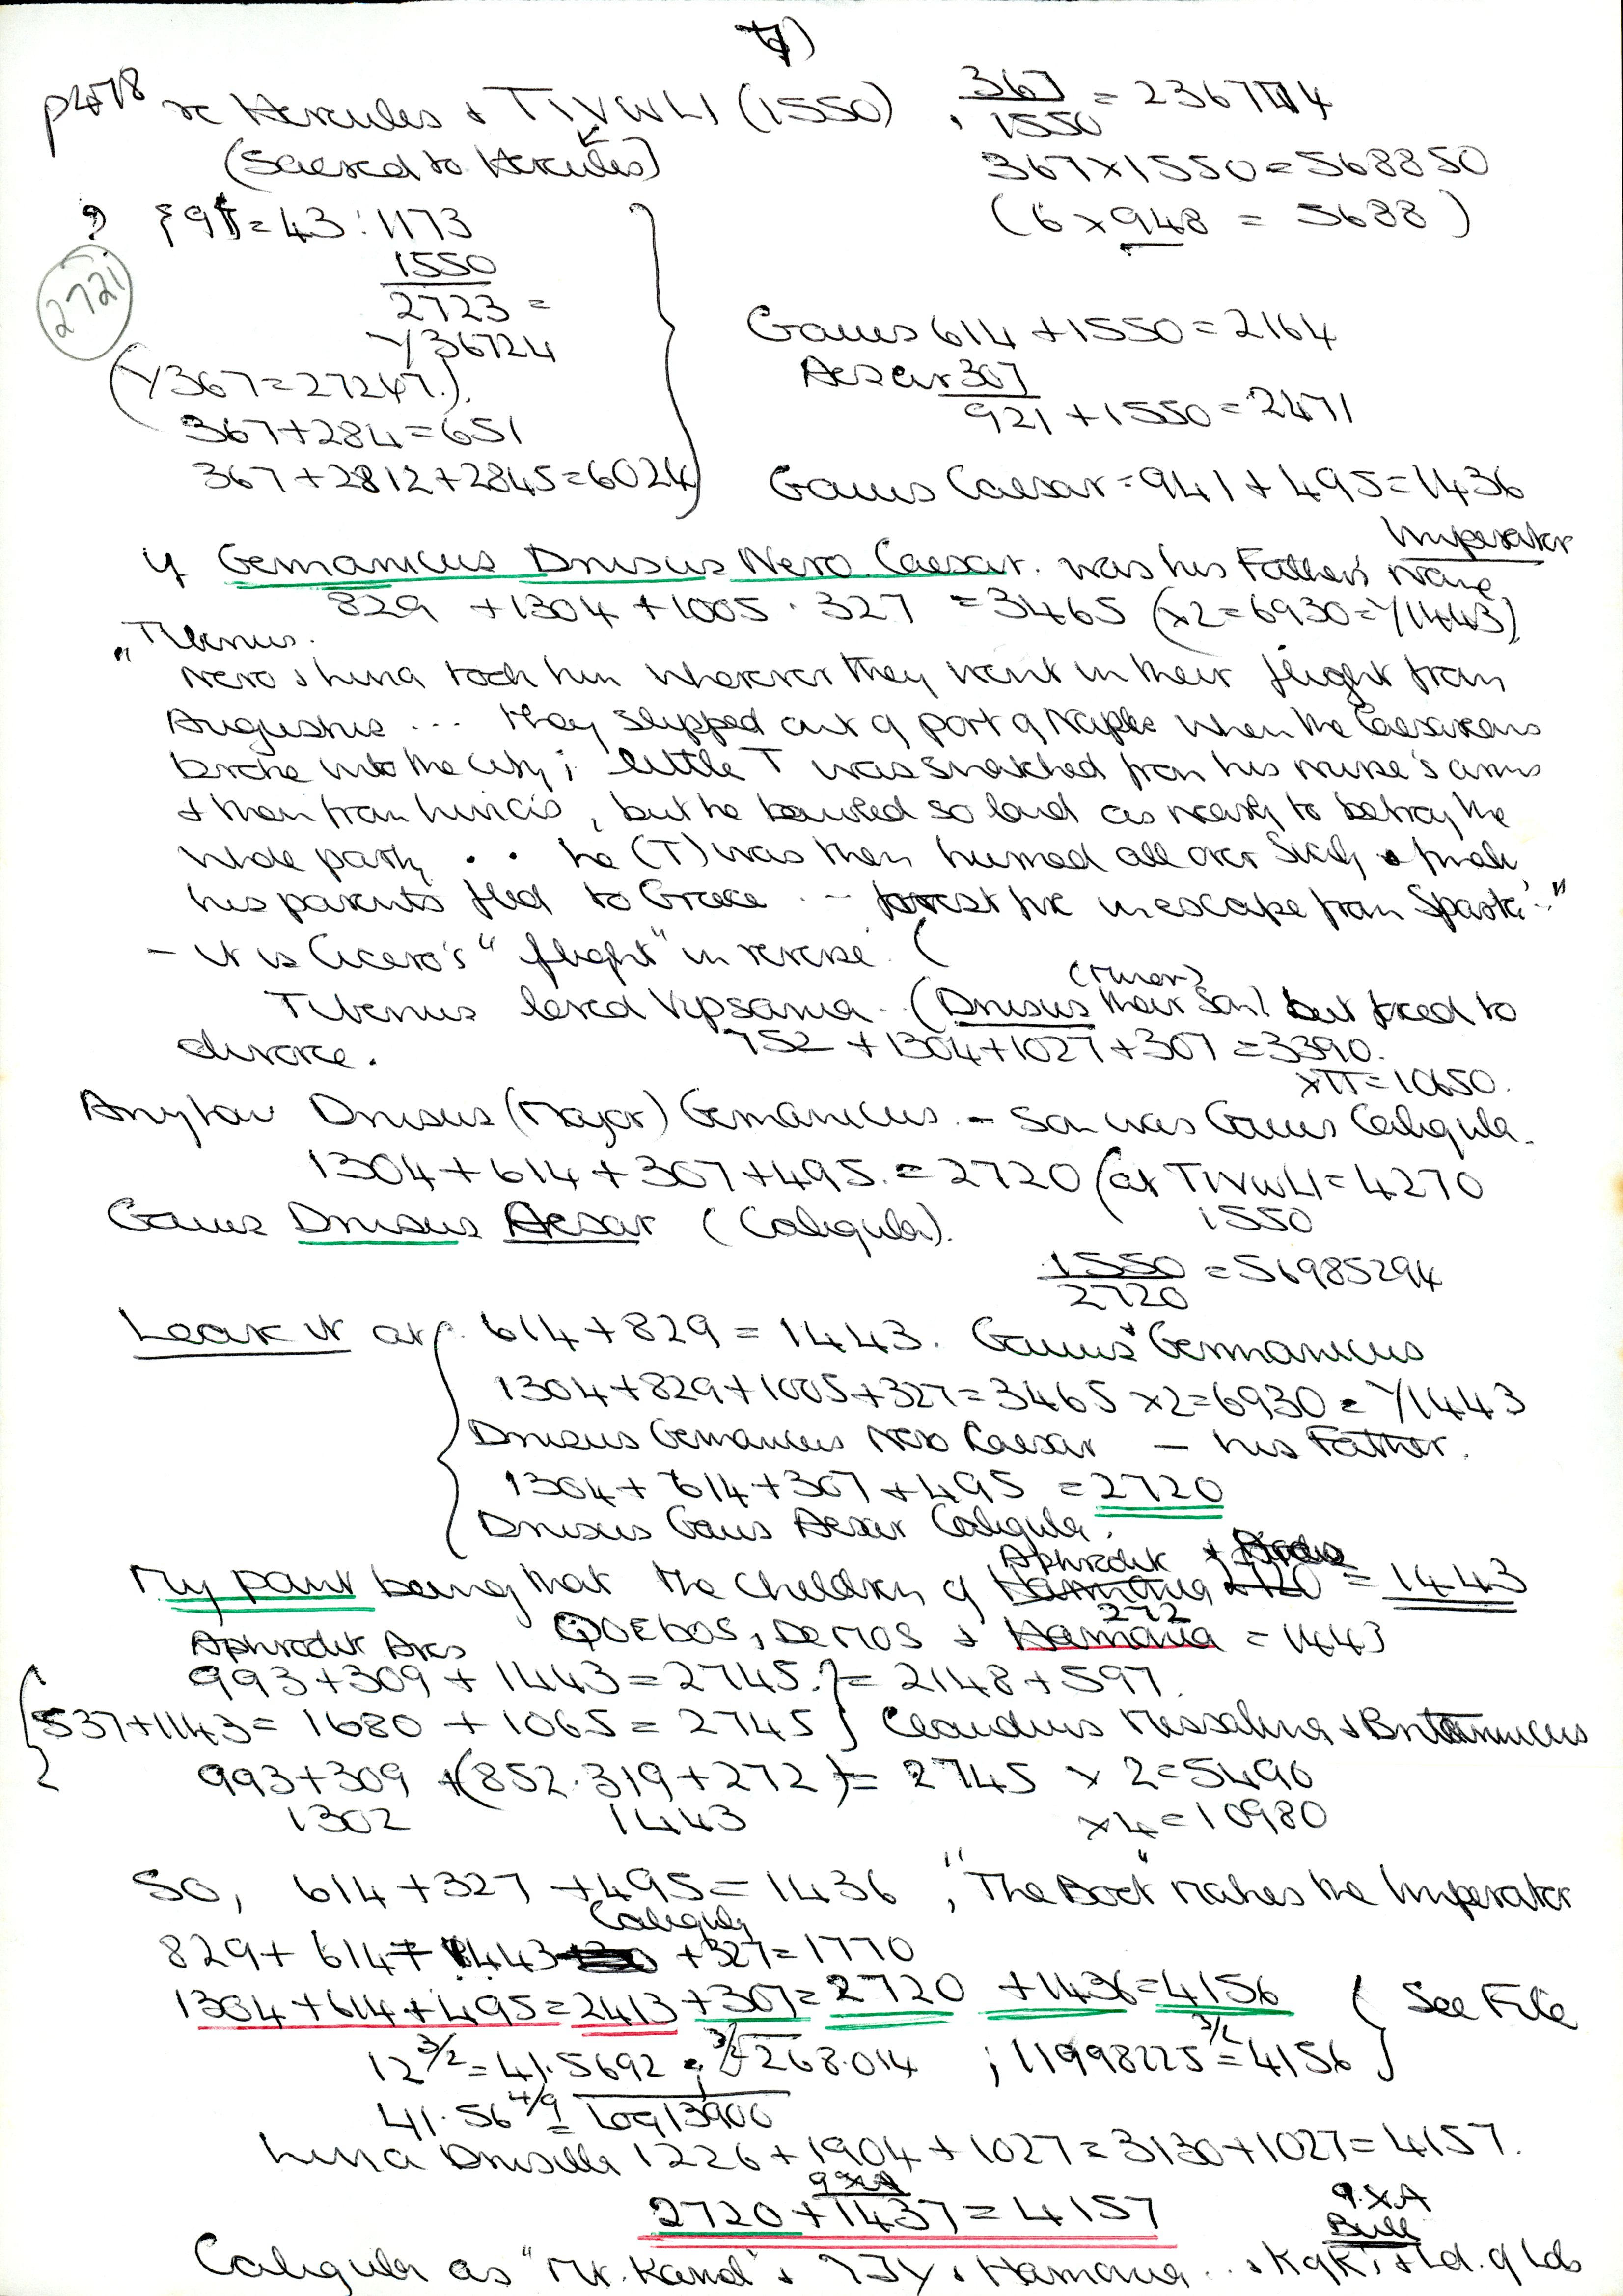 7)
p478 re Hercules + TIVWLI (1550) , 367/1550 = 23677414
(Sacred to Hercules)
367 x 1550 = 568850
(6 x 948 = 5688)
? = 43 : 1173
1550
2723 =
√36724
2721
(√367 = 27247.)
367 + 284 = 651
367 + 2812 + 2845 = 6024
Gaius 614 + 1550 = 2164
Aesar 307
921 + 1550 = 2471
Gaius Caesar = 941 + 495 = 1436
Imperator
if Germanicus Drusus Nero Caesar. was his Father's name
829 + 1304 + 1005 . 327 = 3465 (x2 = 6930 = √1443)
"Tiberius.
Nero & Livia took him wherever they went in their flight from
Augustus ... they slipped out of port of Naples when the Caesareans
broke into the city ; little T was snatched from his nurse's arms
& then from Livia's , but he bawled so loud as nearly to betray the
whole party . . he (T) was then hurried all over Sicily &
his parents fled to Greece .. - forest fire in escape from Sparta .."
- it is Cicero's "flight" in reverse. (
(Minor)
Tiberius loved Vipsania. (Drusus their son) but forced to
divorce. 752 + 1304 + 1027 + 307 = 3390.
x π = 10650.
Anyhow Drusus (Major) Germanicus. - Son was Gaius Caligula.
1304 + 614 + 307 + 495. = 2720 (at TIVWLI = 4270
1550
Gaius Drusus Aesar (Caligula).
1550/2720 = 56985294
Look it at 614 + 829 = 1443. Gaius + Germanicus
1304 + 829 + 1005 + 327 = 3465 x2 = 6930 = √1443
Drusus Germanicus Nero Caesar - his Father.
1304 + 614 + 307 + 495 = 2720
Drusus Gaius Aesar Caligula.
Aphrodite + Ares
My point being that the children of = 1443
272
ΦOEBOS, DEMOS + Harmonia = 1443
Aphrodite Ares
993 + 309 + 1443 = 2745. } = 2148 + 597.
537 + 1143 = 1680 + 1065 = 2745 } Claudius Messalina & Britannicus
993 + 309 + (852 . 319 + 272) = 2745 x 2 = 5490
1302 1443 x4 = 10980
So, 614 + 327 + 495 = 1436 , "The Boot" makes the Imperator
Caligula
829 + 614 + 1443 + 327 = 1770
1304 + 614 + 495 = 2413 + 307 = 2720 + 1436 = 4156 ( See File
12^3/2 = 41.5692 = 3/2√268.014 ; 11998225^3/2 = 4156 )
41.56^4/9 = Log 13900
Livia Drusilla 1226 + 1904 + 1027 = 3130 + 1027 = 4157.
9 x A
2720 + 1437 = 4157
9. x. A
Bull
Caligula as "Mr. Kand" + ?JY + Harmonia .. + K of K, + Ld. of Lds